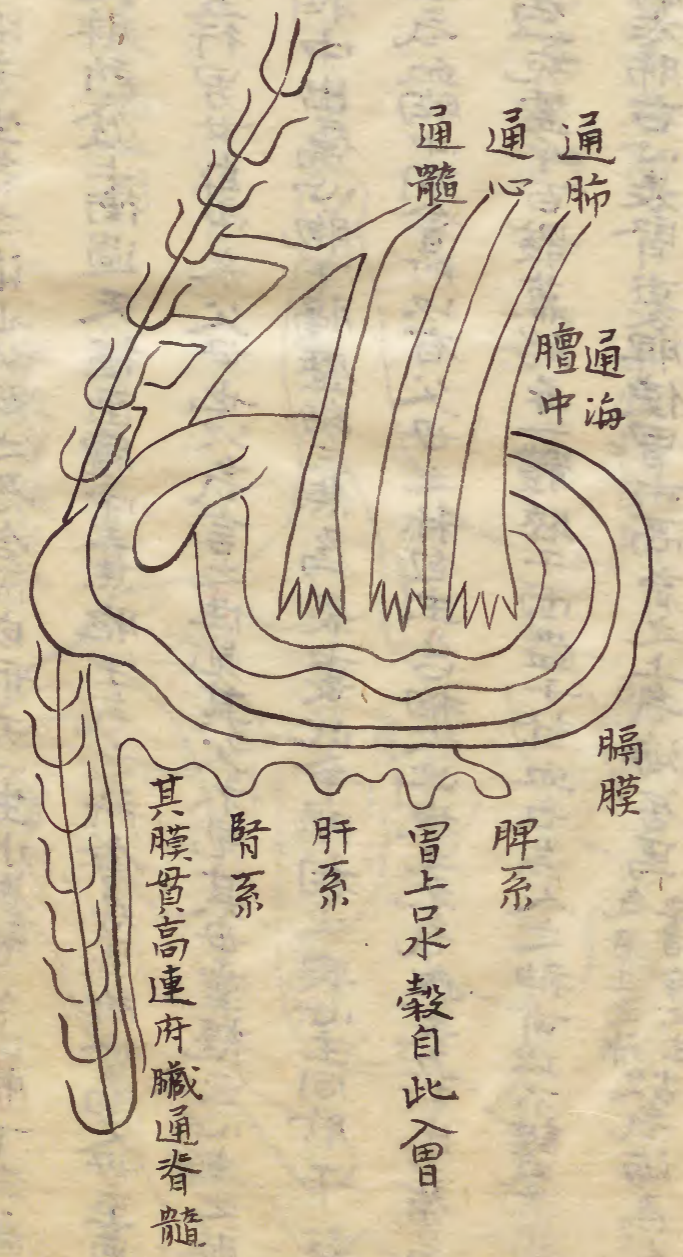 通肺
通心
通髓
通海
膻中
膈膜
脾系
胃上口水穀自此入胃
肝系
腎系
其膜貫高連府臟通脊髓